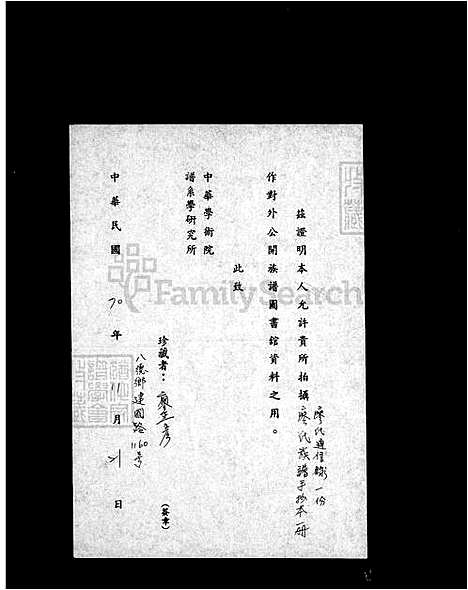 茲證明本人允許貴所拍攝廖氏族譜手抄本一冊
廖氏連信錄一份
作對外公開族譜圖書館資料之用。
此致
中華學術院
譜系學研究所
珍藏者：廖
八德鄉建國路1160号
(簽章)
中華民國70年11月21日
FamilySearch